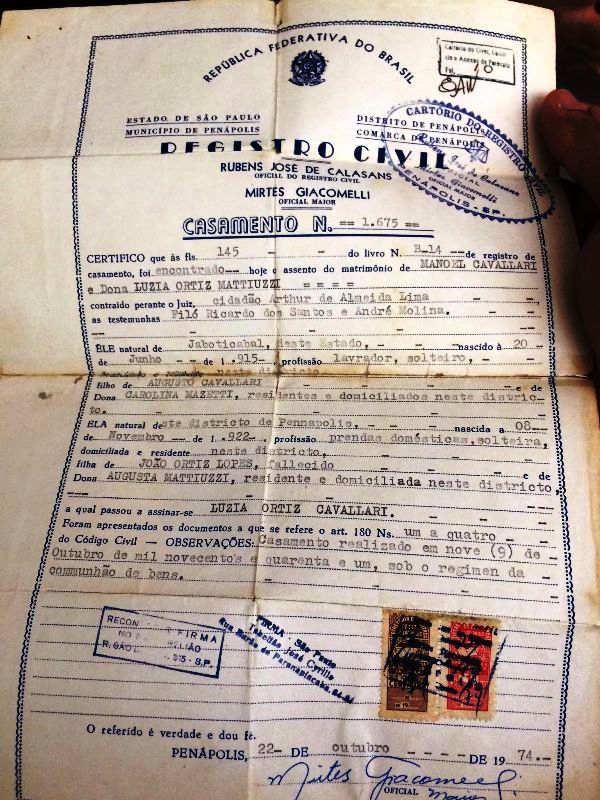 REPÚBLICA FEDERATIVA DO BRASIL
Cartório do Civil,
cio e Anexos de
Fol. 10
ESTADO DE SÃO PAULO
MUNICÍPIO DE PENÁPOLIS
DISTRITO DE PENÁPOLIS
COMARCA DE PENÁPOLIS
CARTÓRIO DO REGISTRO CIVIL
José de Calasans
OFICIAL
Mirtes Giacomelli
OFICIAL MAIOR
PENÁPOLIS - SP.
REGISTRO CIVIL
RUBENS JOSÉ DE CALASANS
OFICIAL DO REGISTRO CIVIL
MIRTES GIACOMELLI
OFICIAL MAIOR
CASAMENTO N. == 1.675 ==
CERTIFICO que às fls. 145 - - do livro N. B-14 -- de registro de
casamento, foi encontrado-- hoje o assento do matrimônio de MANOEL CAVALLARI
e Dona LUZIA ORTIZ MATTIUZZI = = = =
contraído perante o Juiz, cidadão Arthur de Almeida Lima - -
as testemunhas Filé Ricardo dos Santos e André Molina. - -
ÊLE natural de Jaboticabal, deste Estado, - - nascido à 20 -
de Junho - - de 1.915- profissão lavrador, solteiro, - -
neste districto
filho de AUGUSTO CAVALLARI - - e de
Dona CAROLINA MAZETTI, residentes e domiciliados neste distric-
to. - - - - -
ELA natural deste districto de Pennapolis, - nascida a 08--
de Novembro -- de 1.922-, profissão prendas domésticas, solteira,
domiciliada e residente neste districto, - - -
filha de JOÃO ORTIZ LOPES, fallecido - - e de
Dona AUGUSTA MATTIUZZI, residente e domiciliada neste districto,
--- - - - -
a qual passou a assinar-se LUZIA ORTIZ CAVALLARI. - -
Foram apresentados os documentos a que se refere o art. 180 Ns. um a quatro -
do Código Civil — OBSERVAÇÕES: Casamento realizado em nove (9) de
Outubro de mil novecentos e quarenta e um, sob o regimen da
communhão de bens. - - - -
RECON FIRMA
NO LIÃO
R. SÃO 515 - S.P.
FIRMA São Paulo
Tabelião José Cyrillo
Rua Barão de Paranapiacaba, 84-86
O referido é verdade e dou fé.
PENÁPOLIS, 22- DE outubro - - - - DE 19 74.--
Mirtes Giacomelli
OFICIAL Maior